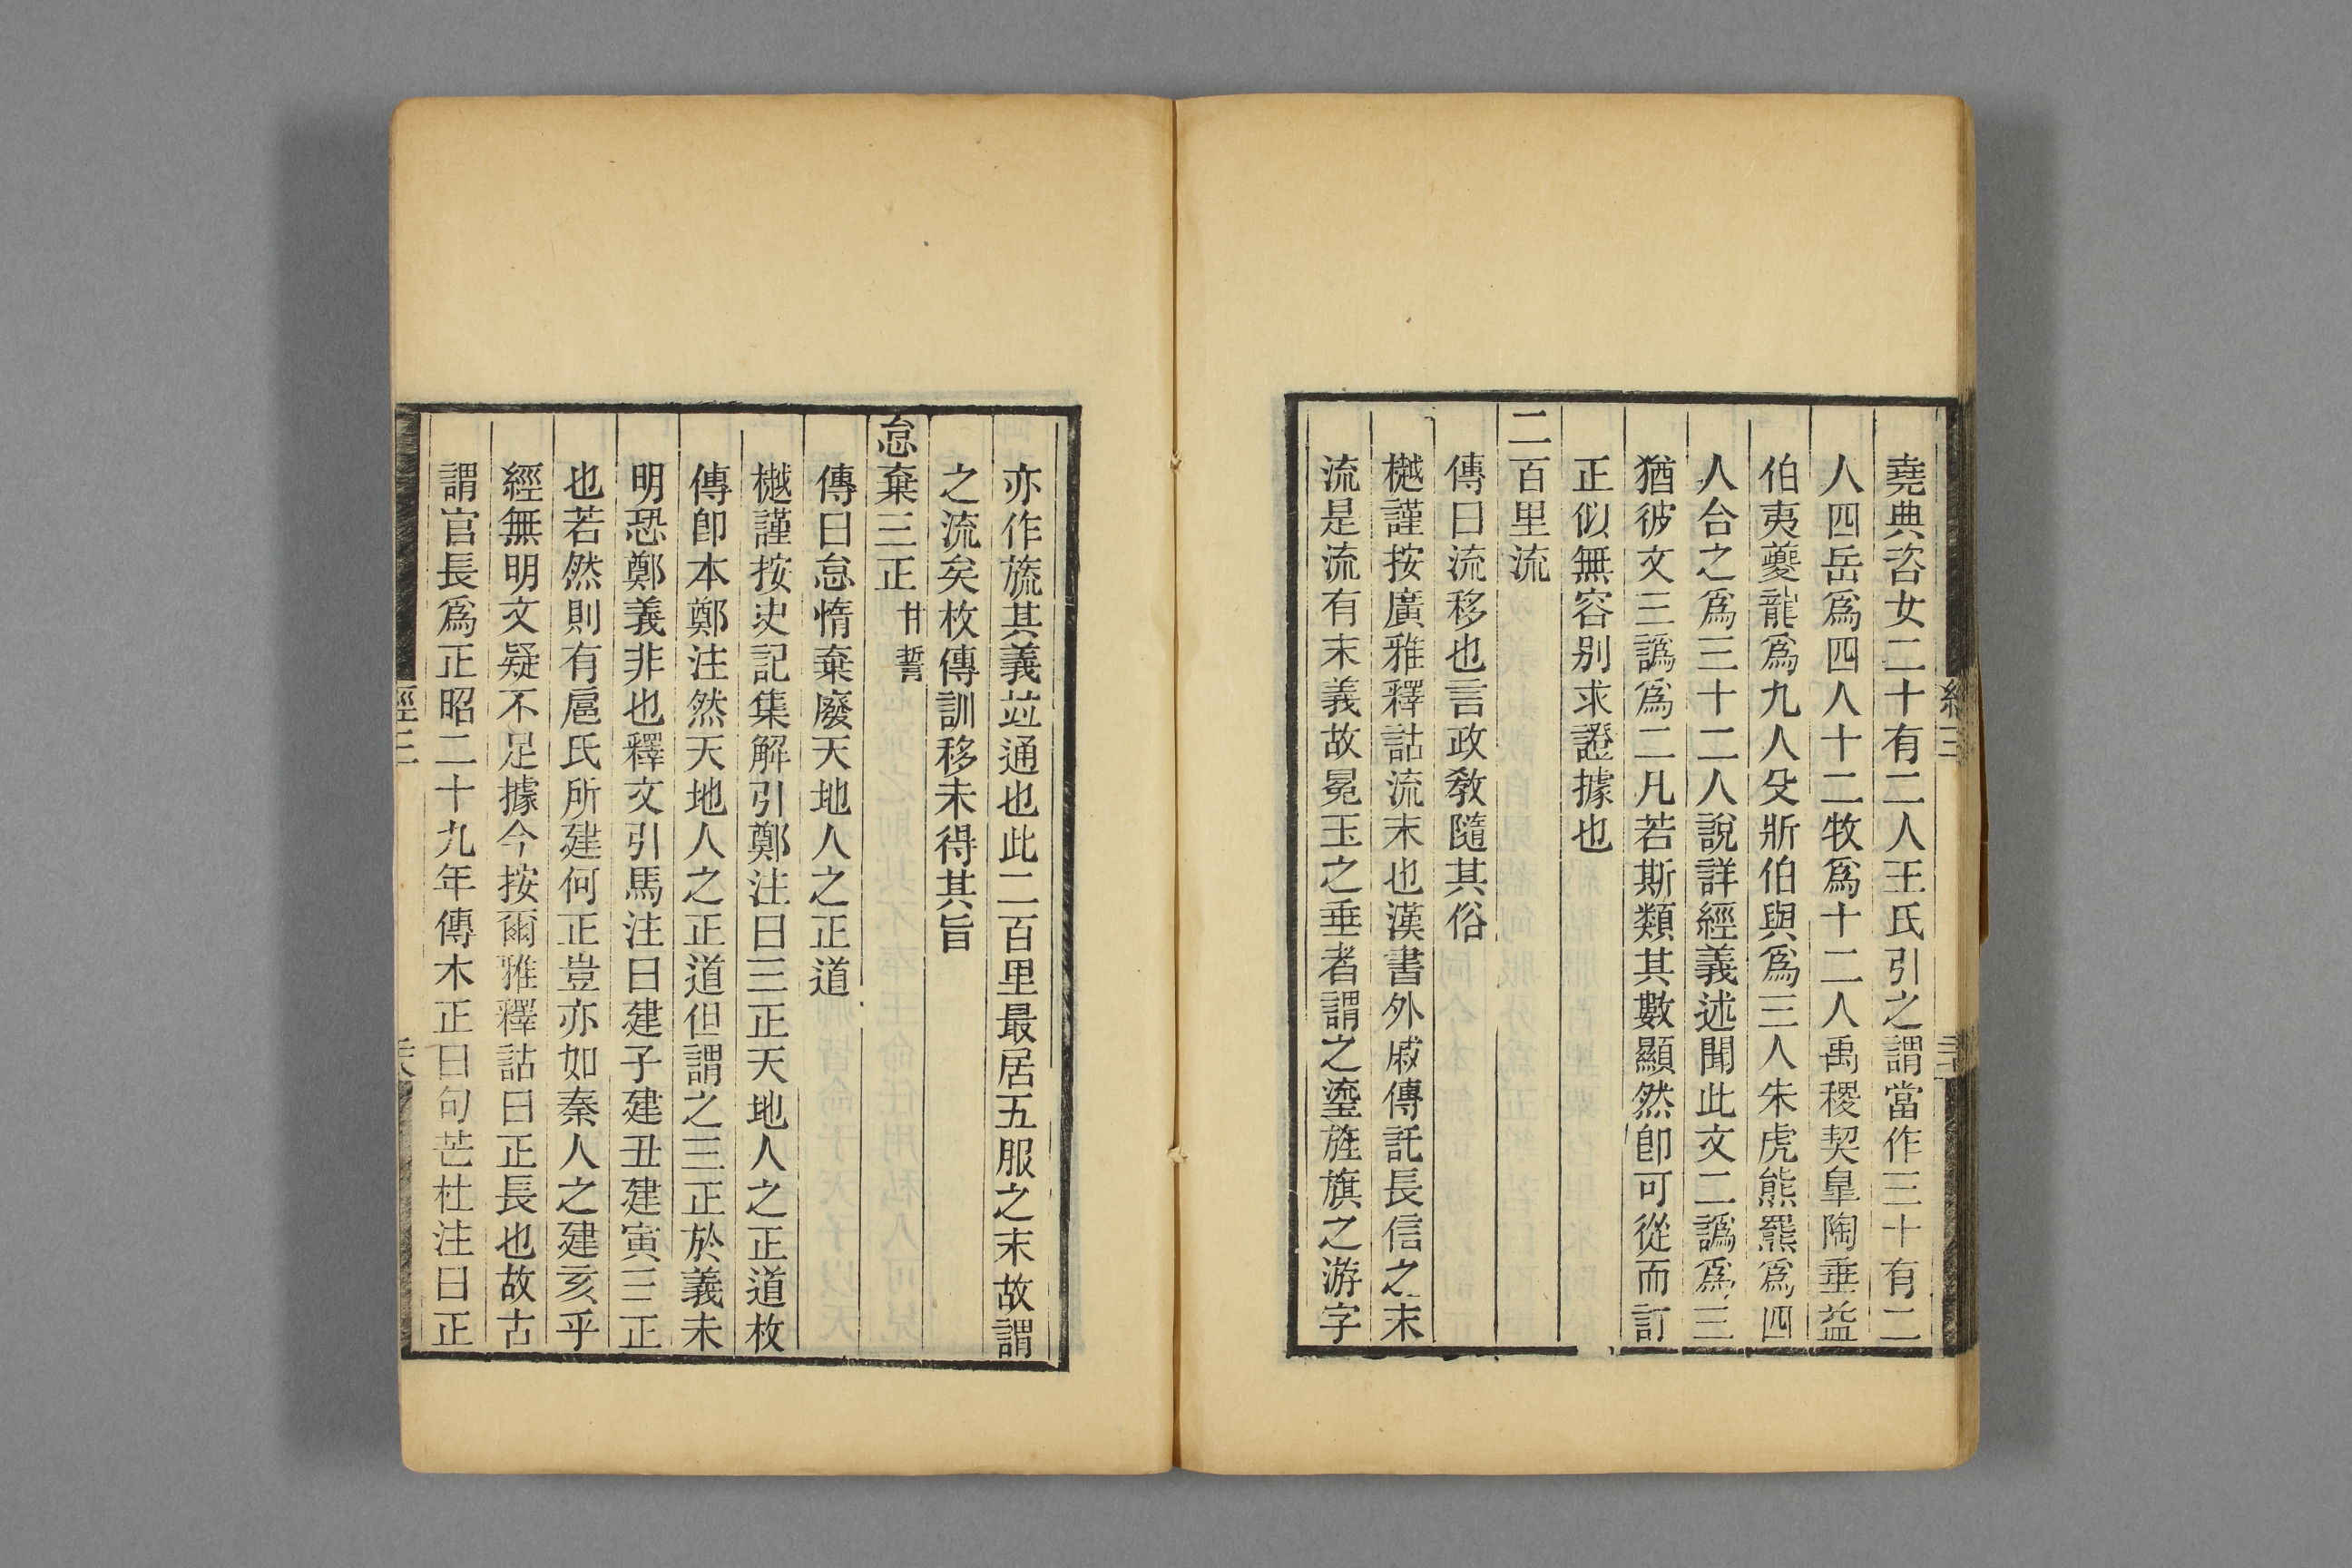 堯典咨女二十有二人王氏引之謂當作三十有二
人四岳爲四人十二牧爲十二人禹稷契臯陶垂益
伯夷夔龍爲九人殳斨伯與爲三人朱虎熊羆爲四
人合之爲三十二人說詳經義述聞此文二譌爲三
猶彼文三譌爲二凡若斯類其數顯然卽可從而訂
正似無容别求證據也
二百里流
傳曰流移也言政敎隨其俗
樾謹按廣雅釋詁流末也漢書外戚傳託長信之末
流是流有末義故冕玉之垂者謂之瑬旌旗之游字
亦作旒其義竝通也此二百里最居五服之末故謂
之流矣枚傳訓移未得其旨
怠棄三正 甘誓
傳曰怠惰棄廢天地人之正道
樾謹按史記集解引鄭注曰三正天地人之正道枚
傳卽本鄭注然天地人之正道但謂之三正於義未
明恐鄭義非也釋文引馬注曰建子建丑建寅三正
也若然則有扈氏所建何正豈亦如秦人之建亥乎
經無明文疑不足據今按爾雅釋詁曰正長也故古
謂官長爲正昭二十九年傳木正曰句芒杜注曰正